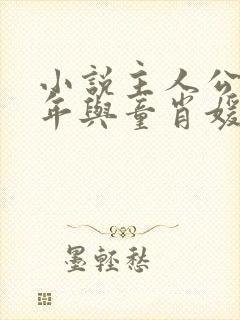 小說主人公
年與童肖媛
墨輕愁